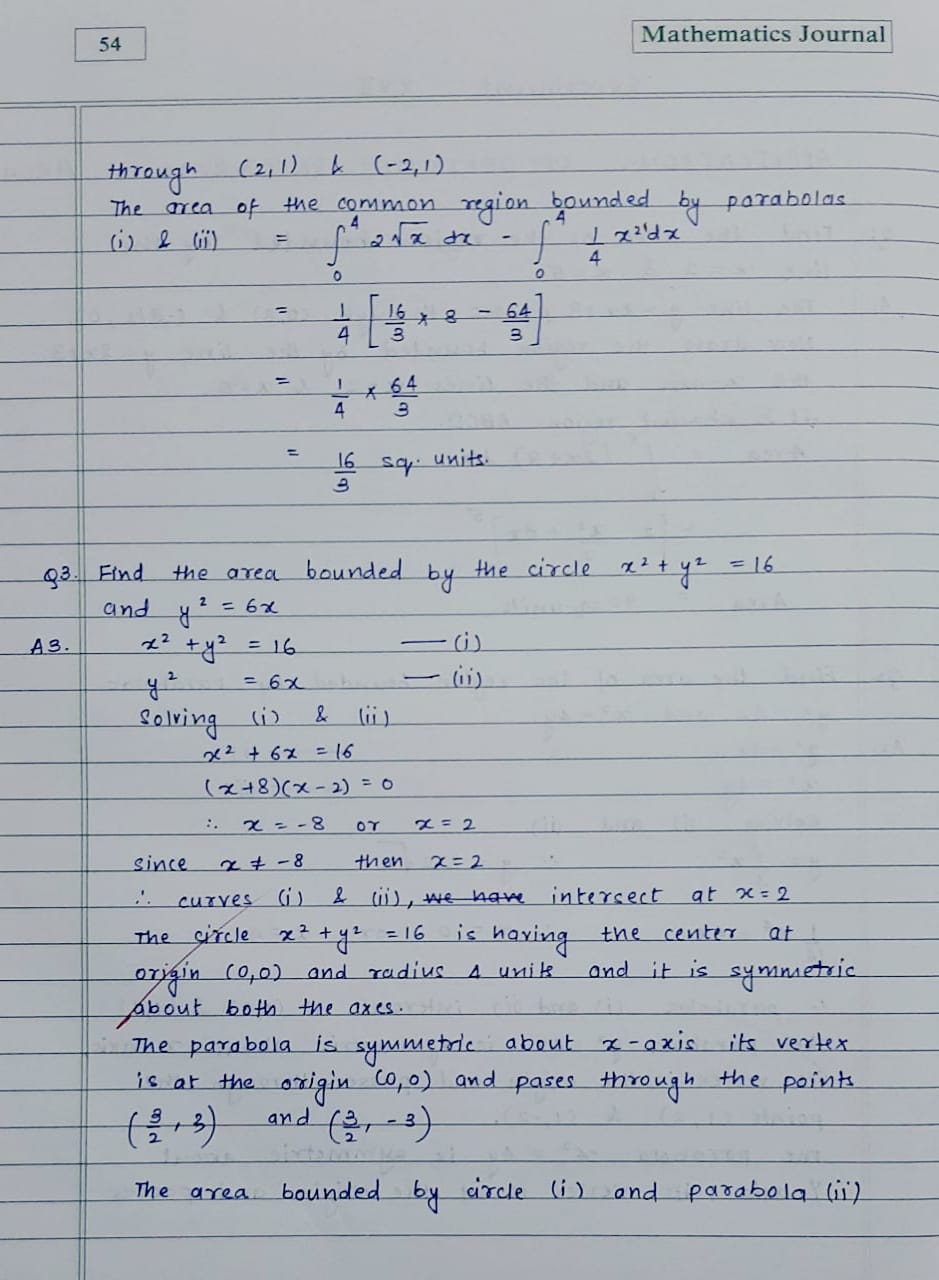 54
Mathematics Journal
through (2,1) & (-2,1)
The area of the common region bounded by parabolas
(i) & (ii) = ∫₀⁴ 2√x dx - ∫₀⁴ 1/4 x² dx
= 1/4 [16/3 × 8 - 64/3]
= 1/4 × 64/3
= 16/3 sq. units.
Q3. Find the area bounded by the circle x² + y² = 16
and y² = 6x
A3. x² + y² = 16 —(i)
y² = 6x —(ii)
Solving (i) & (ii)
x² + 6x = 16
(x+8)(x-2) = 0
∴ x = -8 or x = 2
since x ≠ -8 then x = 2
∴ curves (i) & (ii), we have intersect at x = 2
The circle x² + y² = 16 is having the center at
origin (0,0) and radius 4 units and it is symmetric
about both the axes.
The parabola is symmetric about x-axis its vertex
is at the origin (0,0) and pases through the points
(3/2, 3) and (3/2, -3)
The area bounded by circle (i) and parabola (ii)